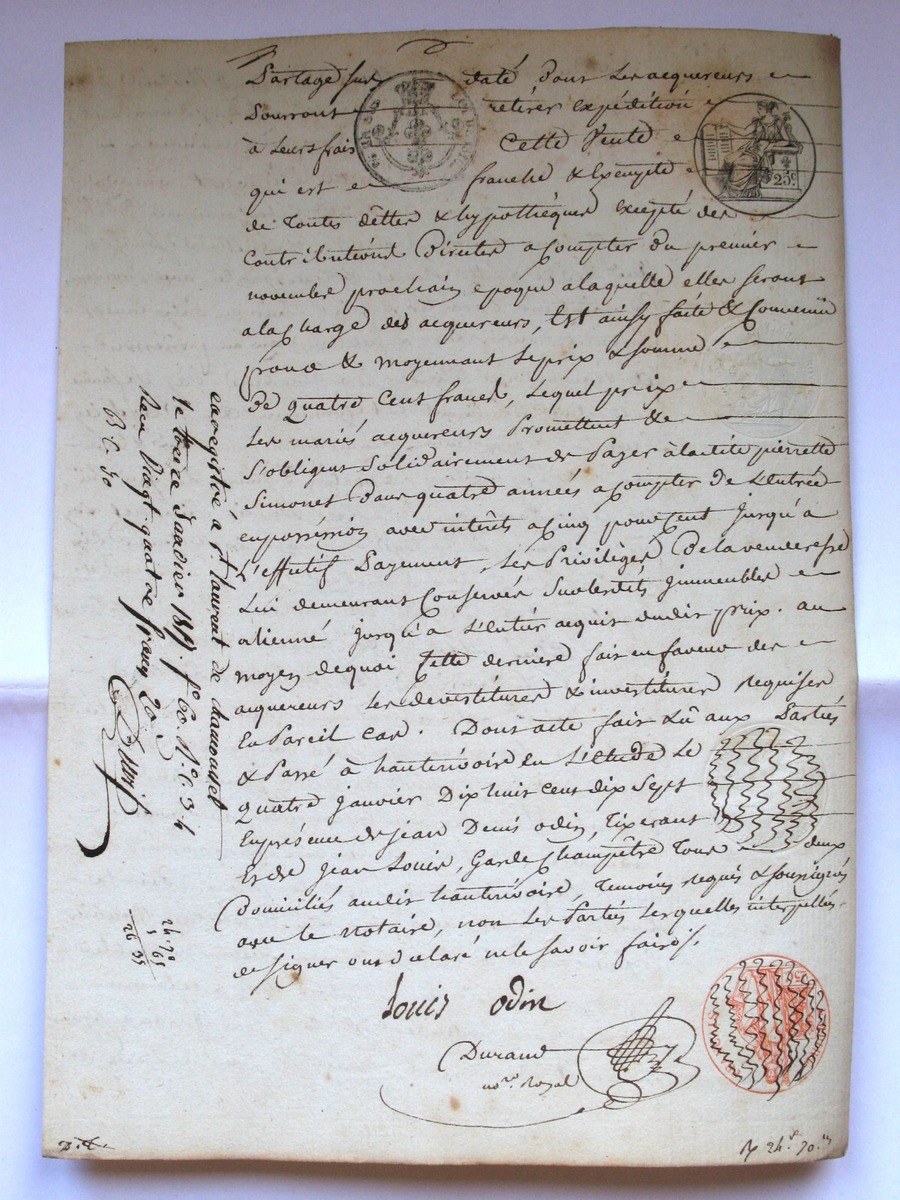 Partage sus daté dont les acquereurs
Pourront retirer expédition
à leurs frais Cette Vente
qui est franche & Exempte
de Toutes dêttes & hypothèques excepté des
Contributions Directes a Compter du premier
novembre prochain epoque a laquelle elles seront
a la Charge des acquereurs, Est ainsy faite & Convenüe
pour & moyennant le prix & somme
De quatre Cent francs, Lequel prix
Les mariés acquereurs Promettent &
S'obligent Solidairement de Payer à la dite pierrette
Simonet Dans quatre années a Compter de L'entrée
en possession avec interêts a Cinq pour Cent jusqu'à
L'effectif Payement, Les Privilèges De la venderesse
Lui demeurant Conservés Sur lesdits jmmeubles
aliené jusqu'a L'entier acquit dudit prix. au
moyen de quoi Cette derniere fait en faveur des
acquereurs les devestitures & investitures requises
En Pareil cas. Dont acte fait Lû aux Parties
& Passé à hauterivoire En L'etude Le
quatre janvier Dix huit cent dix Sept
En présence de jean Denis odin, Tixerant
Et de jean Louis, Garde Champêtre Tous deux
Domiciliés audit hauterivoire, Temoins requis & soussignés
avec le notaire, non les Parties lesquelles interpellés
de signer ont declaré ne le savoir faire
Louis odin
Durand
no.re Royal
enregistré à St laurent de chamousset
le treize Janvier 1817. f.60. r.o C. 3-4
Reçu Vingt quatre francs 20
24.70
26 95
25 c.